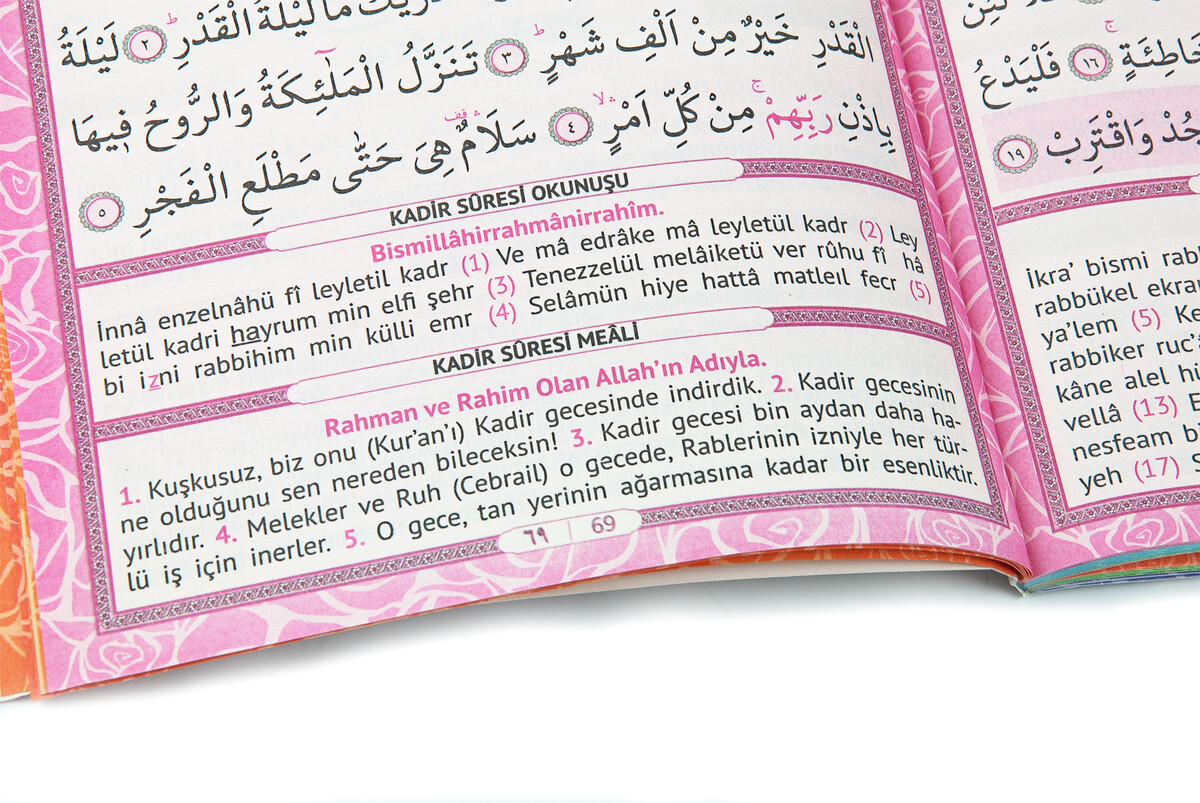 لَيْلَةُ الْقَدْرِ ﴿٢﴾ لَيْلَةُ
الْقَدْرِ خَيْرٌ مِنْ اَلْفِ شَهْرٍ ﴿٣﴾ تَنَزَّلُ الْمَلٰٓئِكَةُ وَالرُّوحُ فٖيهَا
بِاِذْنِ رَبِّهِمْ مِنْ كُلِّ اَمْرٍ ﴿٤﴾ سَلَامٌ هِىَ حَتّٰى مَطْلَعِ الْفَجْرِ ﴿٥﴾
KADİR SÛRESİ OKUNUŞU
Bismillâhirrahmânirrahîm.
İnnâ enzelnâhü fî leyletil kadr (1) Ve mâ edrâke mâ leyletül kadr (2) Ley
letül kadri hayrum min elfi şehr (3) Tenezzelül melâiketü ver rûhu fî hâ
bi izni rabbihim min külli emr (4) Selâmün hiye hattâ matleıl fecr (5)
KADİR SÛRESİ MEÂLİ
Rahman ve Rahim Olan Allah’ın Adıyla.
1. Kuşkusuz, biz onu (Kur’an’ı) Kadir gecesinde indirdik. 2. Kadir gecesinin
ne olduğunu sen nereden bileceksin! 3. Kadir gecesi bin aydan daha ha-
yırlıdır. 4. Melekler ve Ruh (Cebrail) o gecede, Rablerinin izniyle her tür-
lü iş için inerler. 5. O gece, tan yerinin ağarmasına kadar bir esenliktir.
٦٩ | 69
خَاطِئَةٍ ﴿١٦﴾ فَلْيَدْعُ
وَاقْتَرِبْ ﴿١٩﴾
İkra’ bismi rab
rabbükel ekra
ya’lem (5) Ke
rabbiker ruc’
kâne alel hü
vellâ (13) E
nesfeam bi
yeh (17) S